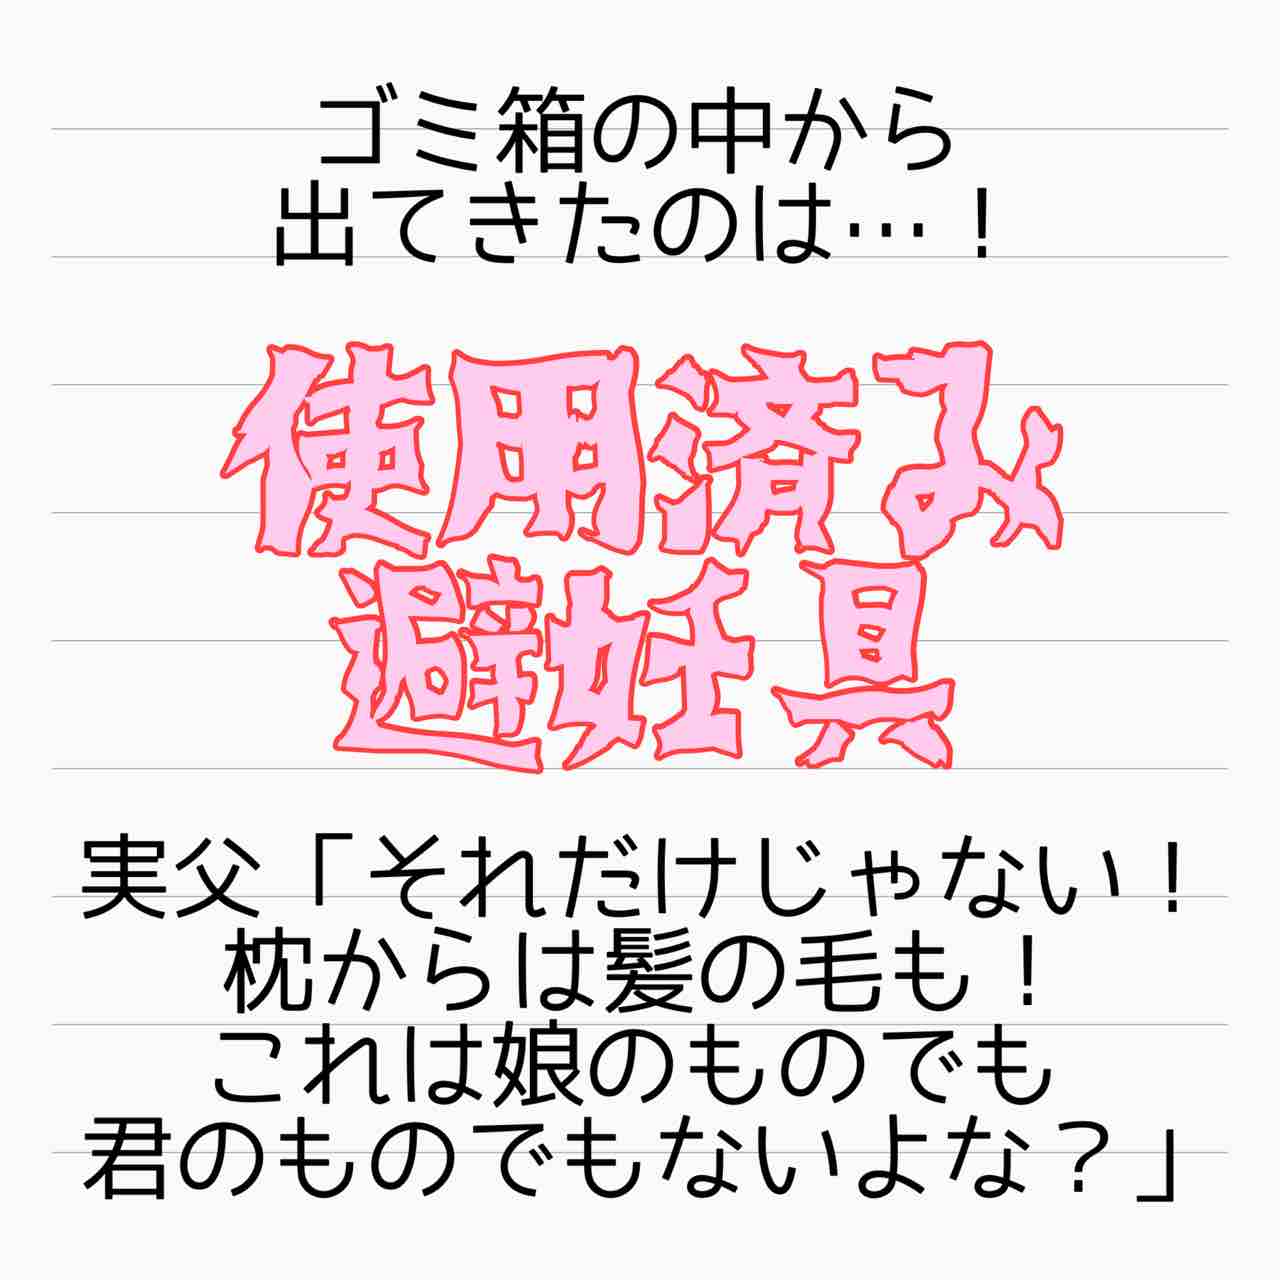 ゴミ箱の中から
出てきたのは…！
使用済み
避妊具
実父「それだけじゃない！
枕からは髪の毛も！
これは娘のものでも
君のものでもないよな？」